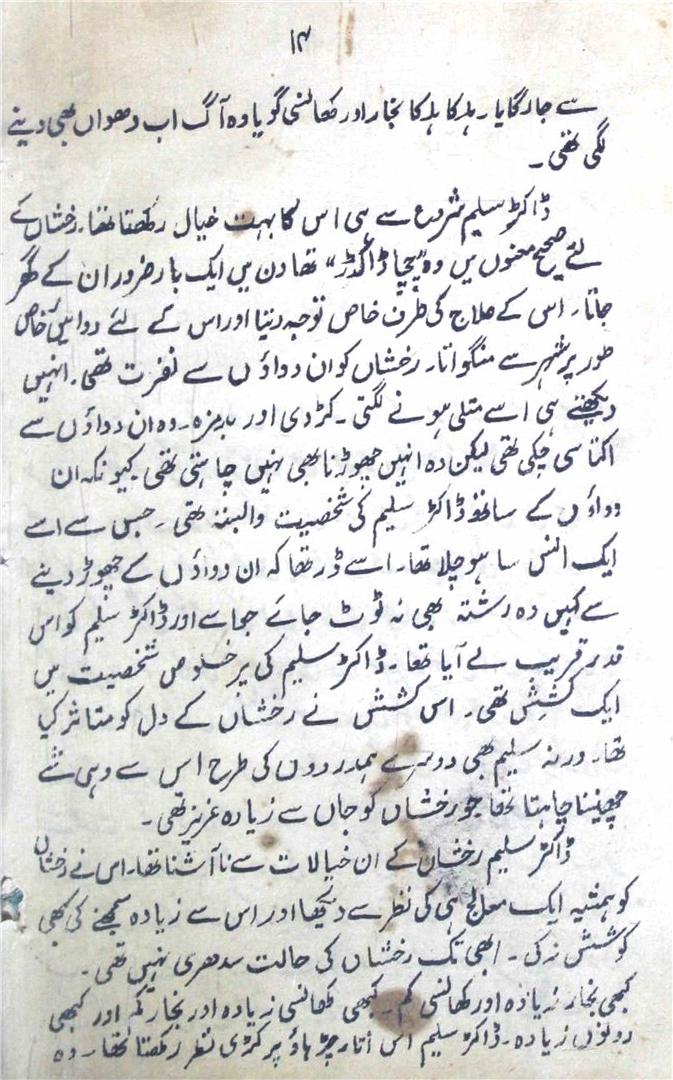 ۱۴
سے جا لگایا۔ ہلکا ہلکا بخار اور کھانسی گویا وہ آگ اب دھواں بھی دینے
لگی تھی۔
ڈاکٹر سلیم شروع سے ہی اس کا بہت خیال رکھتا تھا۔ رخشاں کے
لئے صحیح معنوں میں وہ "چچا ڈاکٹر" تھا دن میں ایک بار ضرور ان کے گھر
جاتا۔ اس کے علاج کی طرف خاص توجہ دیتا اور اس کے لئے دوائیں خاص
طور پر شہر سے منگواتا۔ رخشاں کو ان دواؤں سے نفرت تھی۔ انہیں
دیکھتے ہی اسے متلی ہونے لگتی۔ کڑوی اور بدمزہ۔ وہ ان دواؤں سے
اکتا سی چکی تھی لیکن وہ انہیں چھوڑنا بھی نہیں چاہتی تھی۔ کیونکہ ان
دواؤں کے ساتھ ڈاکٹر سلیم کی شخصیت وابستہ تھی۔ جس سے اسے
ایک انس سا ہو چلا تھا۔ اسے ڈر تھا کہ ان دواؤں کے چھوڑ دینے
سے کہیں وہ رشتہ بھی نہ ٹوٹ جائے جو اسے اور ڈاکٹر سلیم کو اس
قدر قریب لے آیا تھا۔ ڈاکٹر سلیم کی پرخلوص شخصیت میں
ایک کشش تھی۔ اس کشش نے رخشاں کے دل کو متاثر کیا
تھا۔ ورنہ سلیم بھی دوسرے ہمدردوں کی طرح اس سے وہی شئے
چھیننا چاہتا تھا جو رخشاں کو جاں سے زیادہ عزیز تھی۔
ڈاکٹر سلیم رخشاں کے ان خیالات سے ناآشنا تھا۔ اس نے رخشاں
کو ہمیشہ ایک معالج ہی کی نظر سے دیکھا اور اس سے زیادہ سمجھنے کی کبھی
کوشش نہ کی۔ ابھی تک رخشاں کی حالت سدھری نہیں تھی۔
کبھی بخار زیادہ اور کھانسی کم۔ کبھی کھانسی زیادہ اور بخار کم اور کبھی
دونوں زیادہ۔ ڈاکٹر سلیم اس اتار چڑھاؤ پر کڑی نظر رکھتا تھا۔ وہ